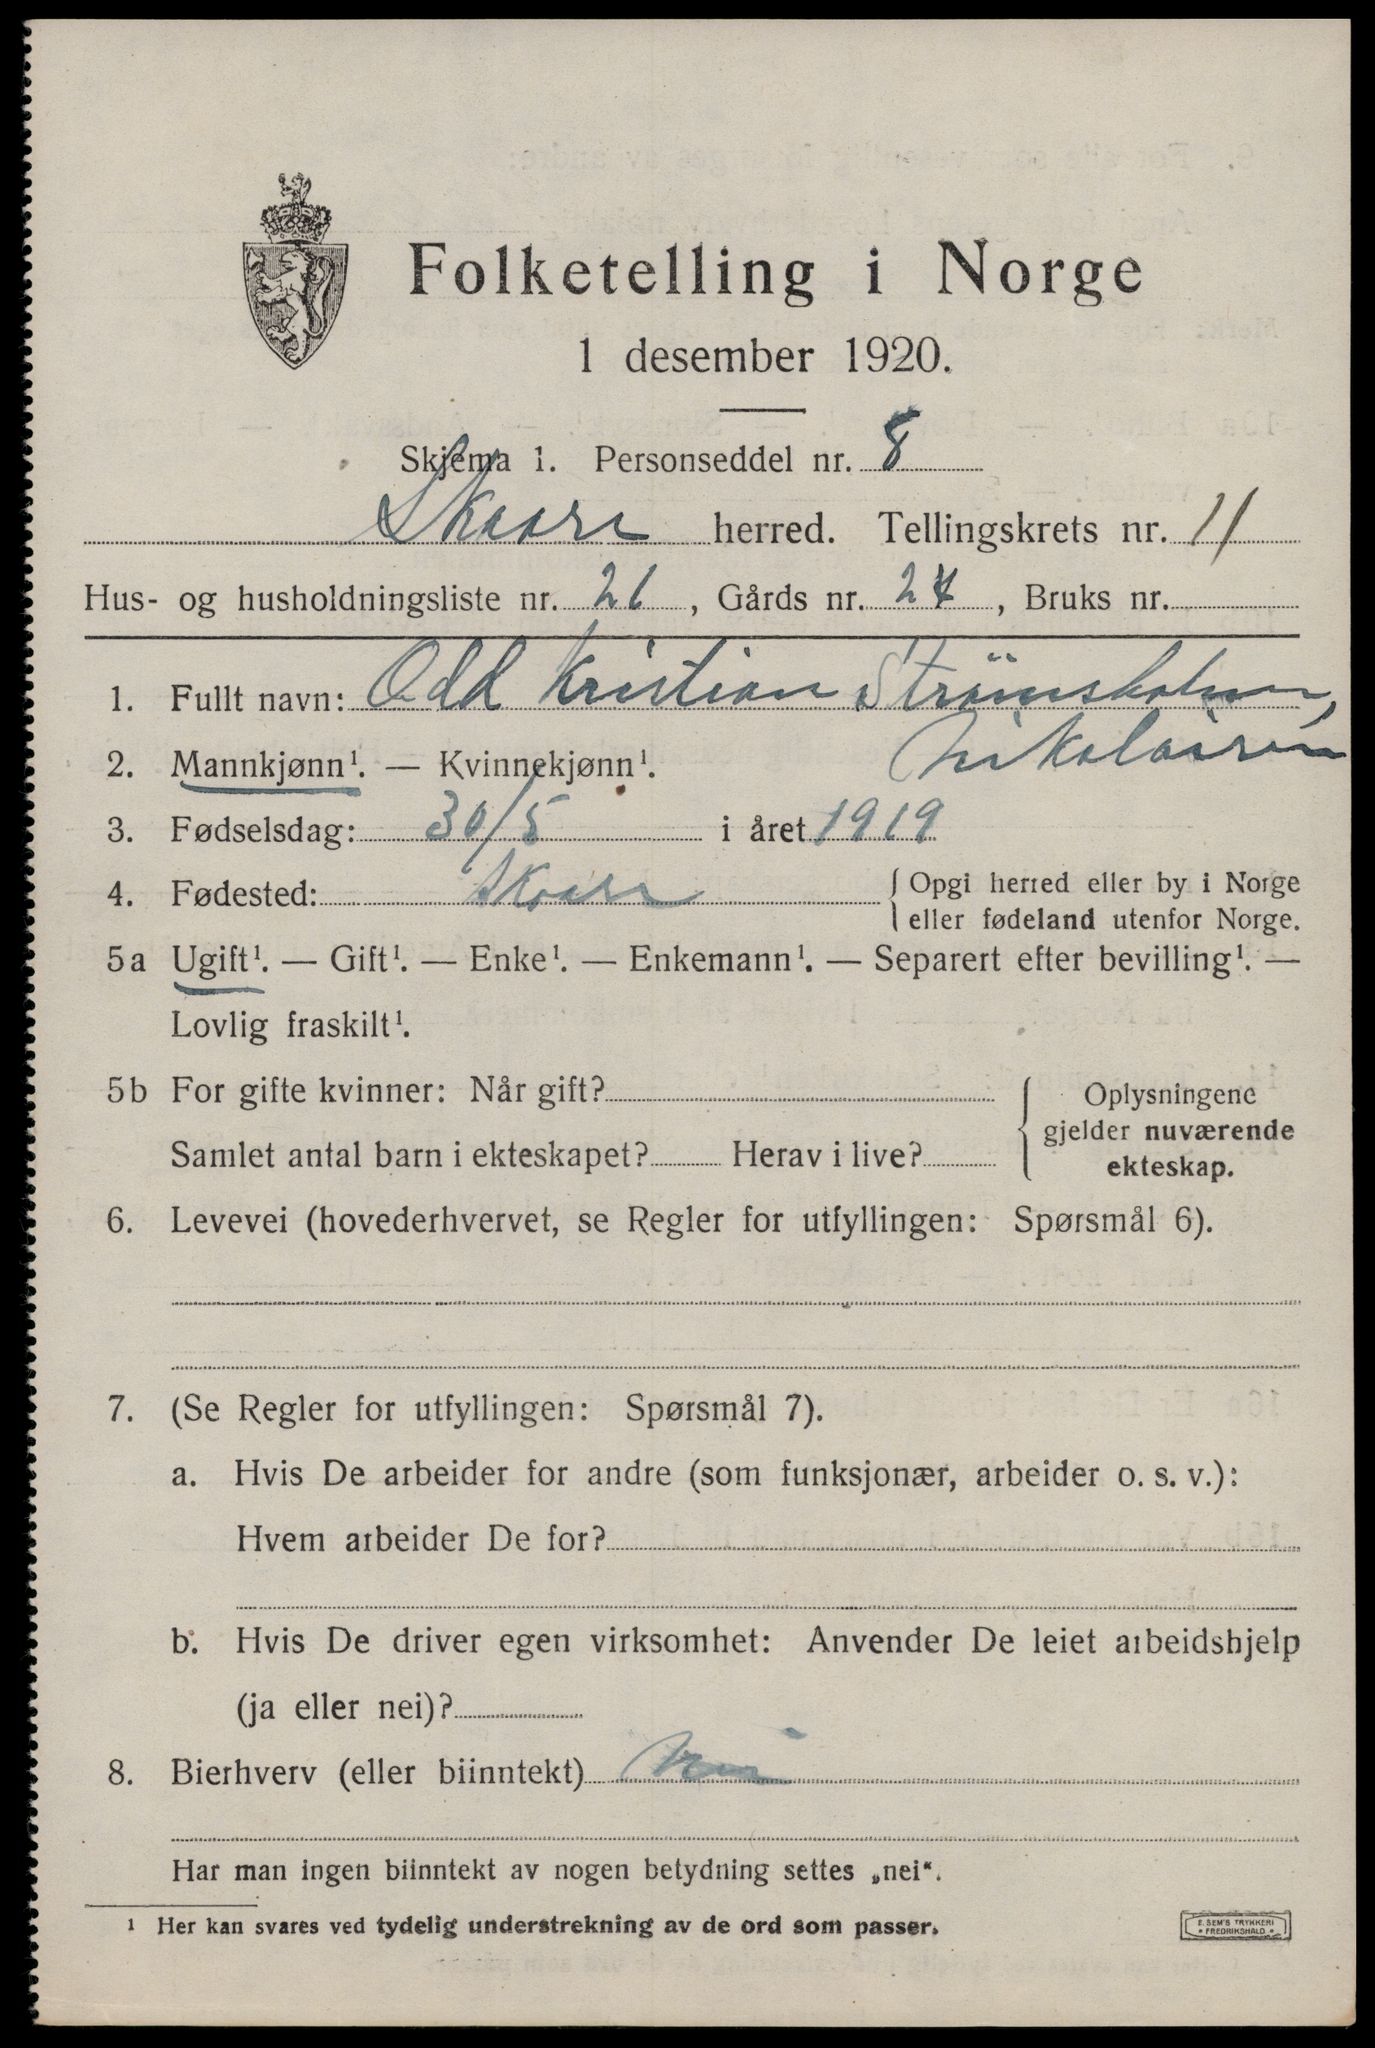 Folketelling i Norge
1 desember 1920.
Skjema 1. Personseddel nr. 8
Skaare herred. Tellingskrets nr. 11
Hus- og husholdningsliste nr. 26, Gårds nr. 24, Bruks nr.
1. Fullt navn: Odd Kristian Strömsholmen,
Nikolaisen
2. Mannkjønn¹. — Kvinnekjønn¹.
3. Fødselsdag: 30/5 i året 1919
4. Fødested: Skaare { Opgi herred eller by i Norge
eller fødeland utenfor Norge.
5a Ugift¹. — Gift¹. — Enke¹. — Enkemann¹. — Separert efter bevilling¹. —
Lovlig fraskilt¹.
5b For gifte kvinner: Når gift?
Samlet antal barn i ekteskapet? Herav i live?
{ Oplysningene
gjelder nuværende
ekteskap.
6. Levevei (hovederhvervet, se Regler for utfyllingen: Spørsmål 6).
7. (Se Regler for utfyllingen: Spørsmål 7).
a. Hvis De arbeider for andre (som funksjonær, arbeider o. s. v.):
Hvem arbeider De for?
b. Hvis De driver egen virksomhet: Anvender De leiet arbeidshjelp
(ja eller nei)?
8. Bierhverv (eller biinntekt) Nei
Har man ingen biinntekt av nogen betydning settes „nei“.
¹ Her kan svares ved tydelig understrekning av de ord som passer.
E. SEM'S TRYKKERI
• FREDRIKSHALD •